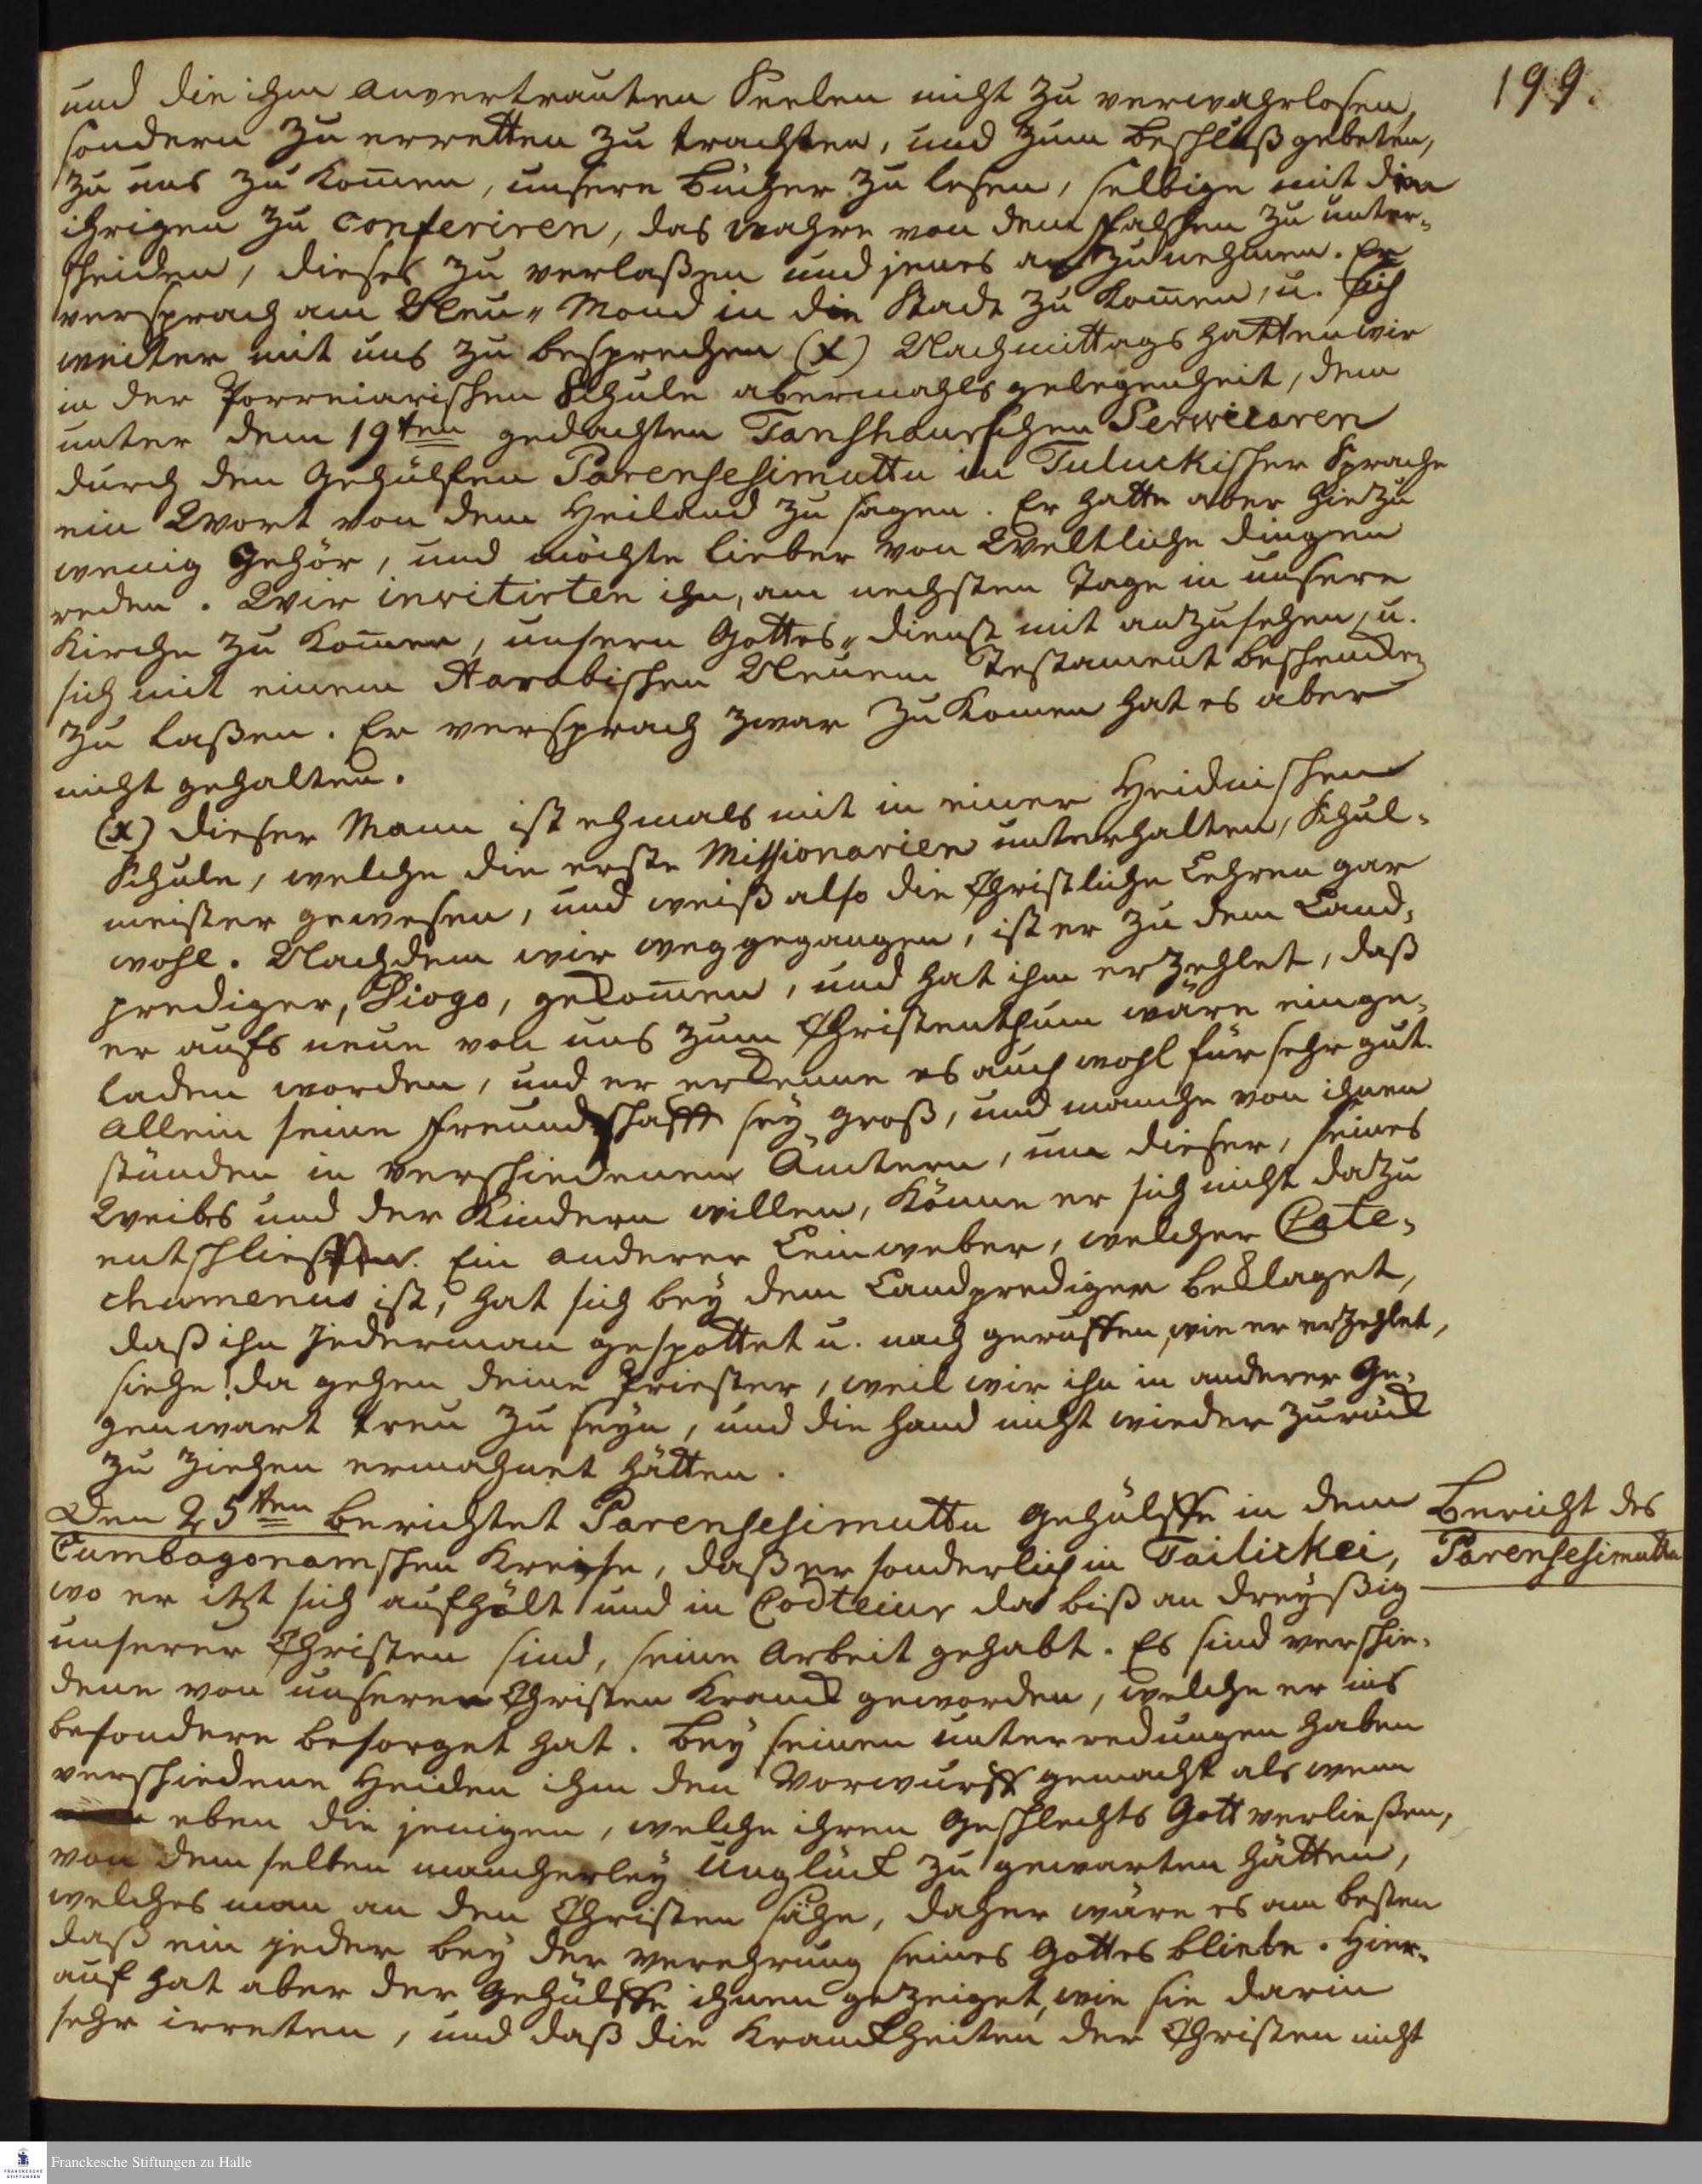 199.
und die ihm anvertrauten Seelen nicht zu verwahrlosen,
sondern zu erretten zu trachten, und zum Beschluß gebeten,
zu uns zu kom̄en, unsere Bücher zu lesen, selbige mit den
ihrigen zu conferiren, das wahre von dem falschen zu unter-
scheiden, dieses zu verlaßen und jenes anzunehmen. Er
versprach am Neu-Mond in die Stadt zu kom̄en, u. sich
weiter mit uns zu besprechen (x) Nachmittags hatten wir
in der Porreiarischen Schule abermahls gelegenheit, dem
unter dem 19ten gedachten Tanshaurschen Serwicaren
durch den Gehülfen Parensesimuttu in Tuluckischer Sprache
ein Wort von dem Heiland zu sagen. Er hatte aber hiezu
wenig Gehör, und möchte lieber von Weltliche dingen
reden. Wir invitirten ihn, am nechsten Tage in unsere
Kirche zu kom̄en, unsern Gottes-dienst mit anzusehen, u.
sich mit einem Aarabischen Neuem Testament beschencken
zu laßen. Er versprach zwar zu komen hat es aber
nicht gehalten.
(x) Dieser Mann ist ehmals mit in einer Heidnischen
Schule, welche die erste Missionarien unterhalten, Schul-
meister gewesen, und weiß also die Christliche Lehren gar
wohl. Nachdem wir weggegangen, ist er zu dem Land-
prediger, Diogo, gekom̄en, und hat ihm erzehlet, daß
er aufs neue von uns zum Christenthum wäre einge-
laden worden, und er erkenne es auch wohl für sehr gut.
Allein seine Freundschafft sey groß, und manche von ihnen
stünden in verschiedenen Ämtern, um dieser, seines
Weibes und der Kindern willen, könne er sich nicht dazu
entschliessen. Ein anderer Leinweber, welcher Cate-
chumenus ist, hat sich bey dem Landprediger beklaget,
daß ihn jederman gespottet u. nach geruffen, wie er erzehlet,
siehe! da gehen deine Priester, weil wir ihn in anderer Ge-
genwart treu zu seyn, und die Hand nicht wieder zurück
zu ziehen ermahnet hätten.
Den 25ten berichtet Parensesimuttu Gehülffe in dem
Bericht des
Parensesimuttu
Cumbagonamschen Kreise, daß er sonderlich in Tailickei,
wo er itzt sich aufhält und in Codteiur da biß an dreyßig
unserer Christen sind, seine Arbeit gehabt. Es sind verschie-
dene von unseren Christen kranck geworden, welche er ins
besondere besorget hat. Bey seinen unterredungen haben
verschiedene Heiden ihm den Vorwurff gemacht als wenn
eben die jenigen, welche ihren Geschlechts Gott verließen,
von dem selben mancherley Unglück zu gewarten hätten,
welches man an den Christen sähe, daher wäre es am besten
daß ein jeder bey der Verehrung seines Gottes bliebe. Hier-
auf hat aber der Gehülffe ihnen gezeiget, wie sie darin
sehr irreten, und daß die Kranckheiten der Christen nicht
Franckesche Stiftungen zu Halle